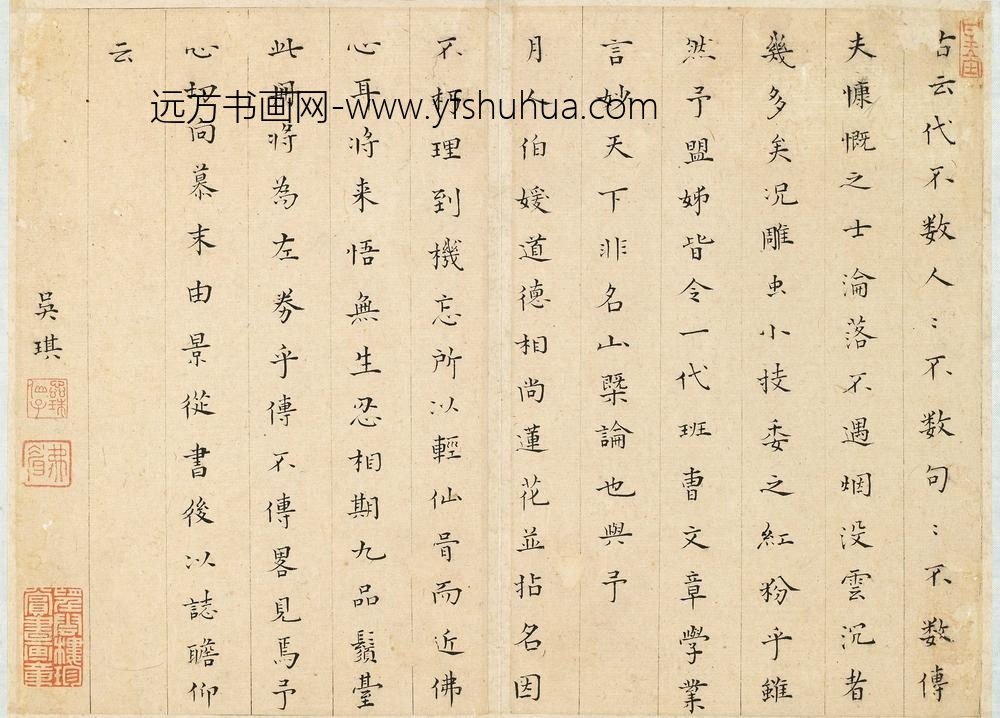 古云代不数人〻不数句〻不数傳
夫慷慨之士淪落不遇烟没雲沉者
幾多矣况雕虫小技委之紅粉乎雖
然予盟姊皆令一代班曹文章學業
言妙天下非名山槩論也與予
月人伯媛道德相尚蓮花並拈名因
不昧理到機忘所以輕仙骨而近佛
心耳将来悟無生忍相期九品鬚臺
此冊将為左券乎傳不傳畧見焉予
心切向慕末由景從書後以誌瞻仰
云
吳琪
远方书画网-www.yishuhua.com